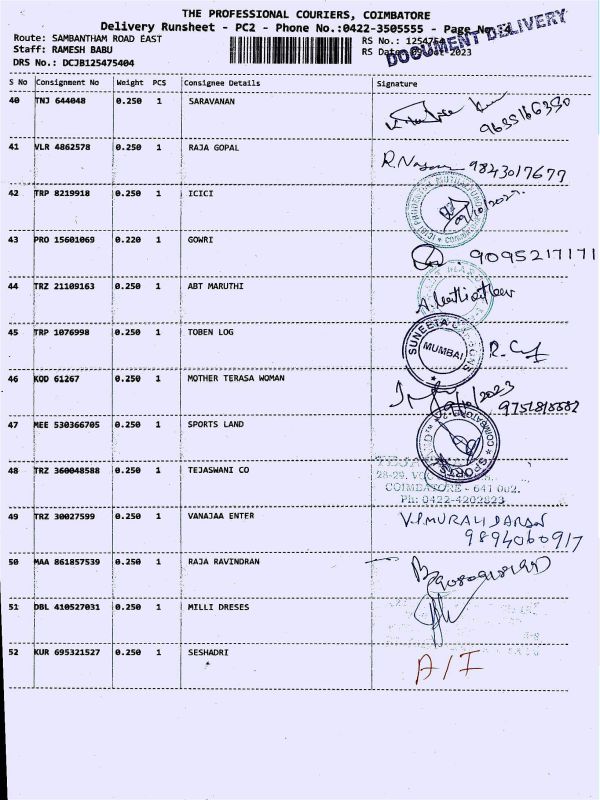 THE PROFESSIONAL COURIERS, COIMBATORE
Delivery Runsheet - PC2 - Phone No.:0422-3505555 - Page No.:4
Route: SAMBANTHAM ROAD EAST
RS No.: 1254754
Staff: RAMESH BABU
RS Date: 09-Oct-2023
DOCUMENT DELIVERY
DRS No.: DCJB125475404
S No Consignment No Weight PCS Consignee Details Signature
40 TNJ 644048 0.250 1 SARAVANAN
9635166350
41 VLR 4862578 0.250 1 RAJA GOPAL
9843017677
42 TRP 8219918 0.250 1 ICICI
43 PRO 15601069 0.220 1 GOWRI
9095217171
44 TRZ 21109163 0.250 1 ABT MARUTHI
45 TRP 1076998 0.250 1 TOBEN LOG
MUMBAI
46 KOD 61267 0.250 1 MOTHER TERASA WOMAN
47 MEE 530366705 0.250 1 SPORTS LAND
48 TRZ 360048588 0.250 1 TEJASWANI CO
COIMBATORE - 641 002.
Ph: 0422-4202823
49 TRZ 30027599 0.250 1 VANAJAA ENTER
V.P.MURALIDARAN
9894060917
50 MAA 861857539 0.250 1 RAJA RAVINDRAN
51 DBL 410527031 0.250 1 MILLI DRESES
52 KUR 695321527 0.250 1 SESHADRI
A/I